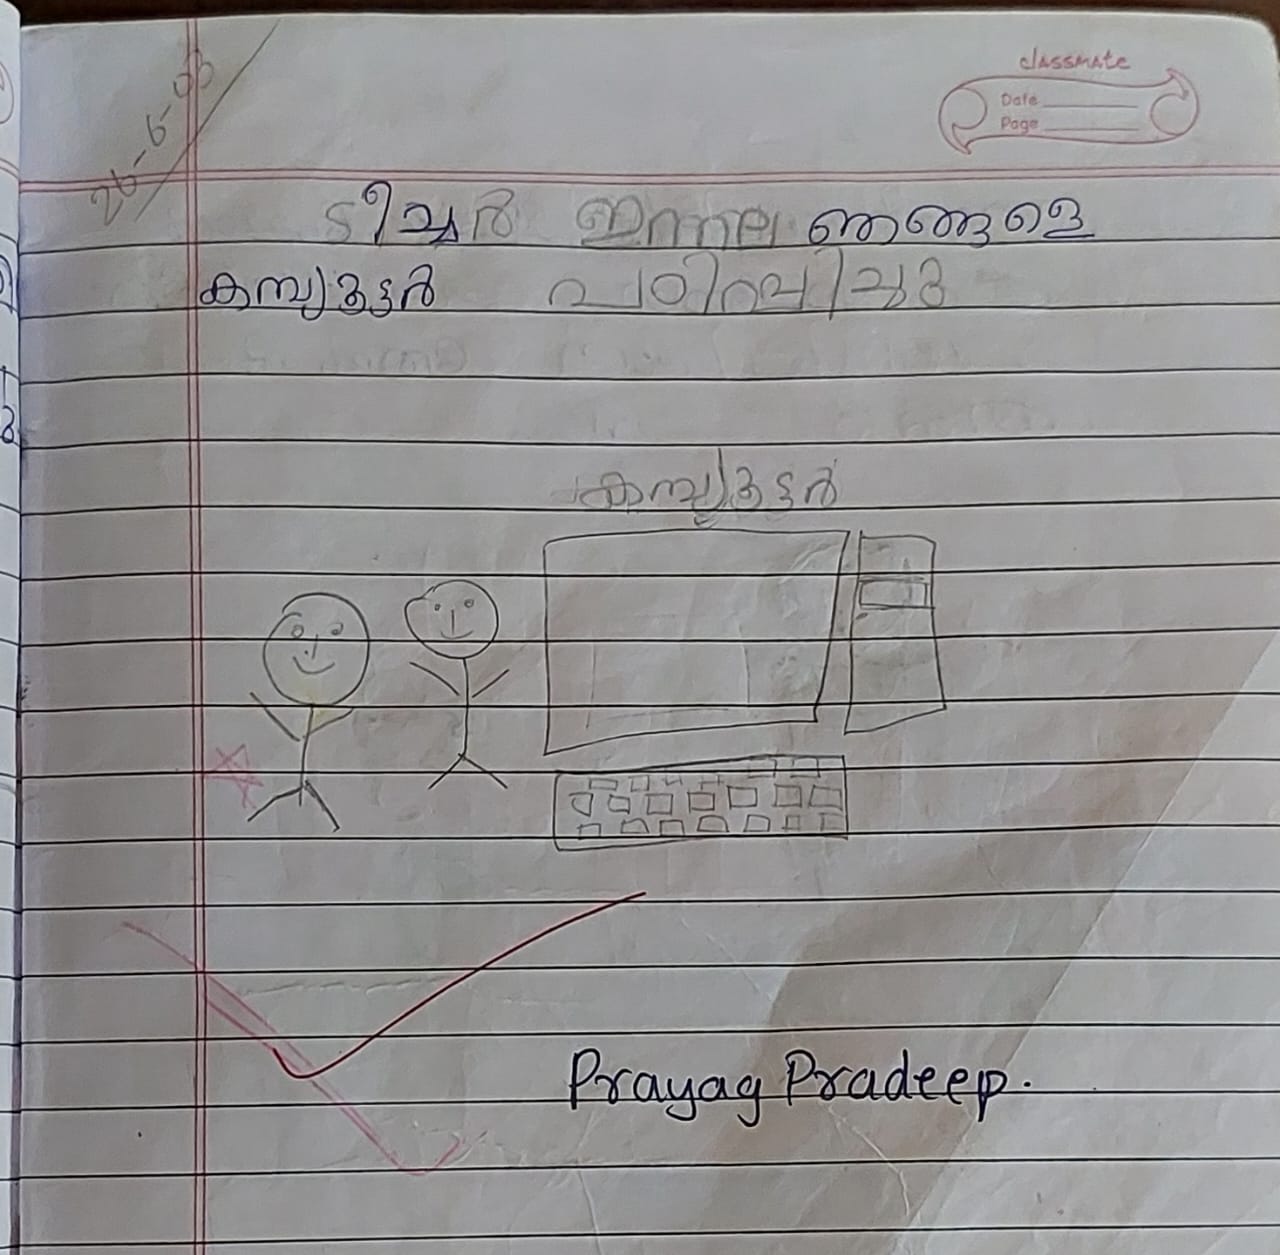 26-6-08
classmate
Date
Page
ടീച്ചർ ഇന്നലെ ഞങ്ങളെ
കമ്പ്യൂട്ടർ പഠിപ്പിച്ചു
കമ്പ്യൂട്ടർ
Prayag Pradeep.